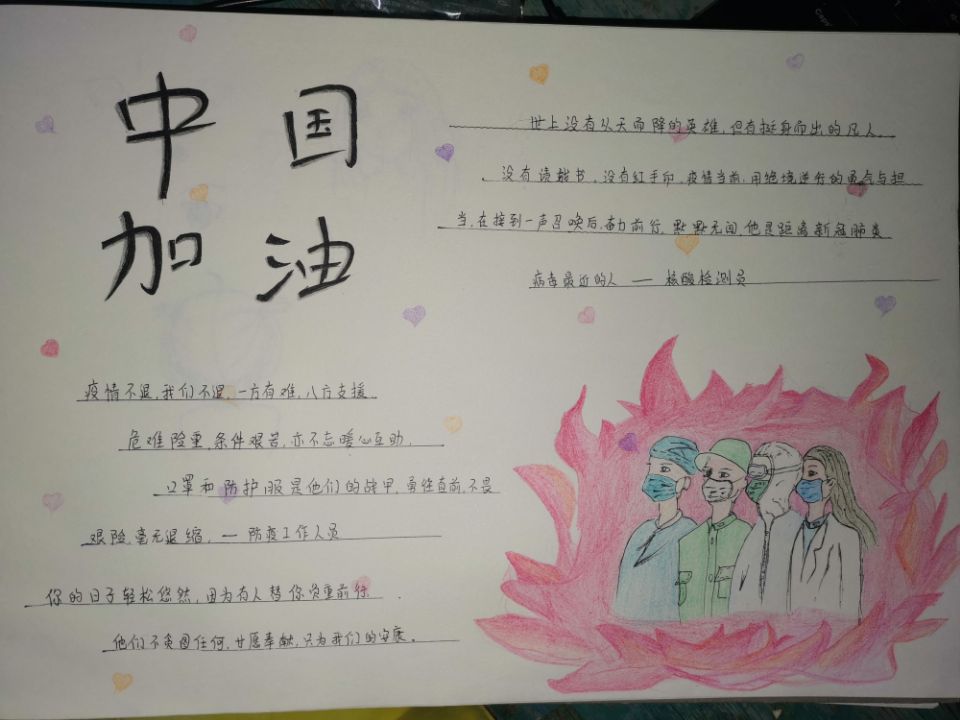 中国
加油
世上没有从天而降的英雄,但有挺身而出的凡人。
没有请战书,没有红手印,疫情当前,用绝境逆行的勇气与担
当,在接到一声召唤后,奋力前行,默默无闻,他是距离新冠肺炎
病毒最近的人 — 核酸检测员
疫情不退,我们不退,一方有难,八方支援
危难险重,条件艰苦,亦不忘暖心互助,
口罩和防护服是他们的战甲,勇往直前,不畏
艰险,毫无退缩, — 防疫工作人员
你的日子轻松悠然,因为有人替你负重前行
他们不负国任何,甘愿奉献,只为我们的安康。